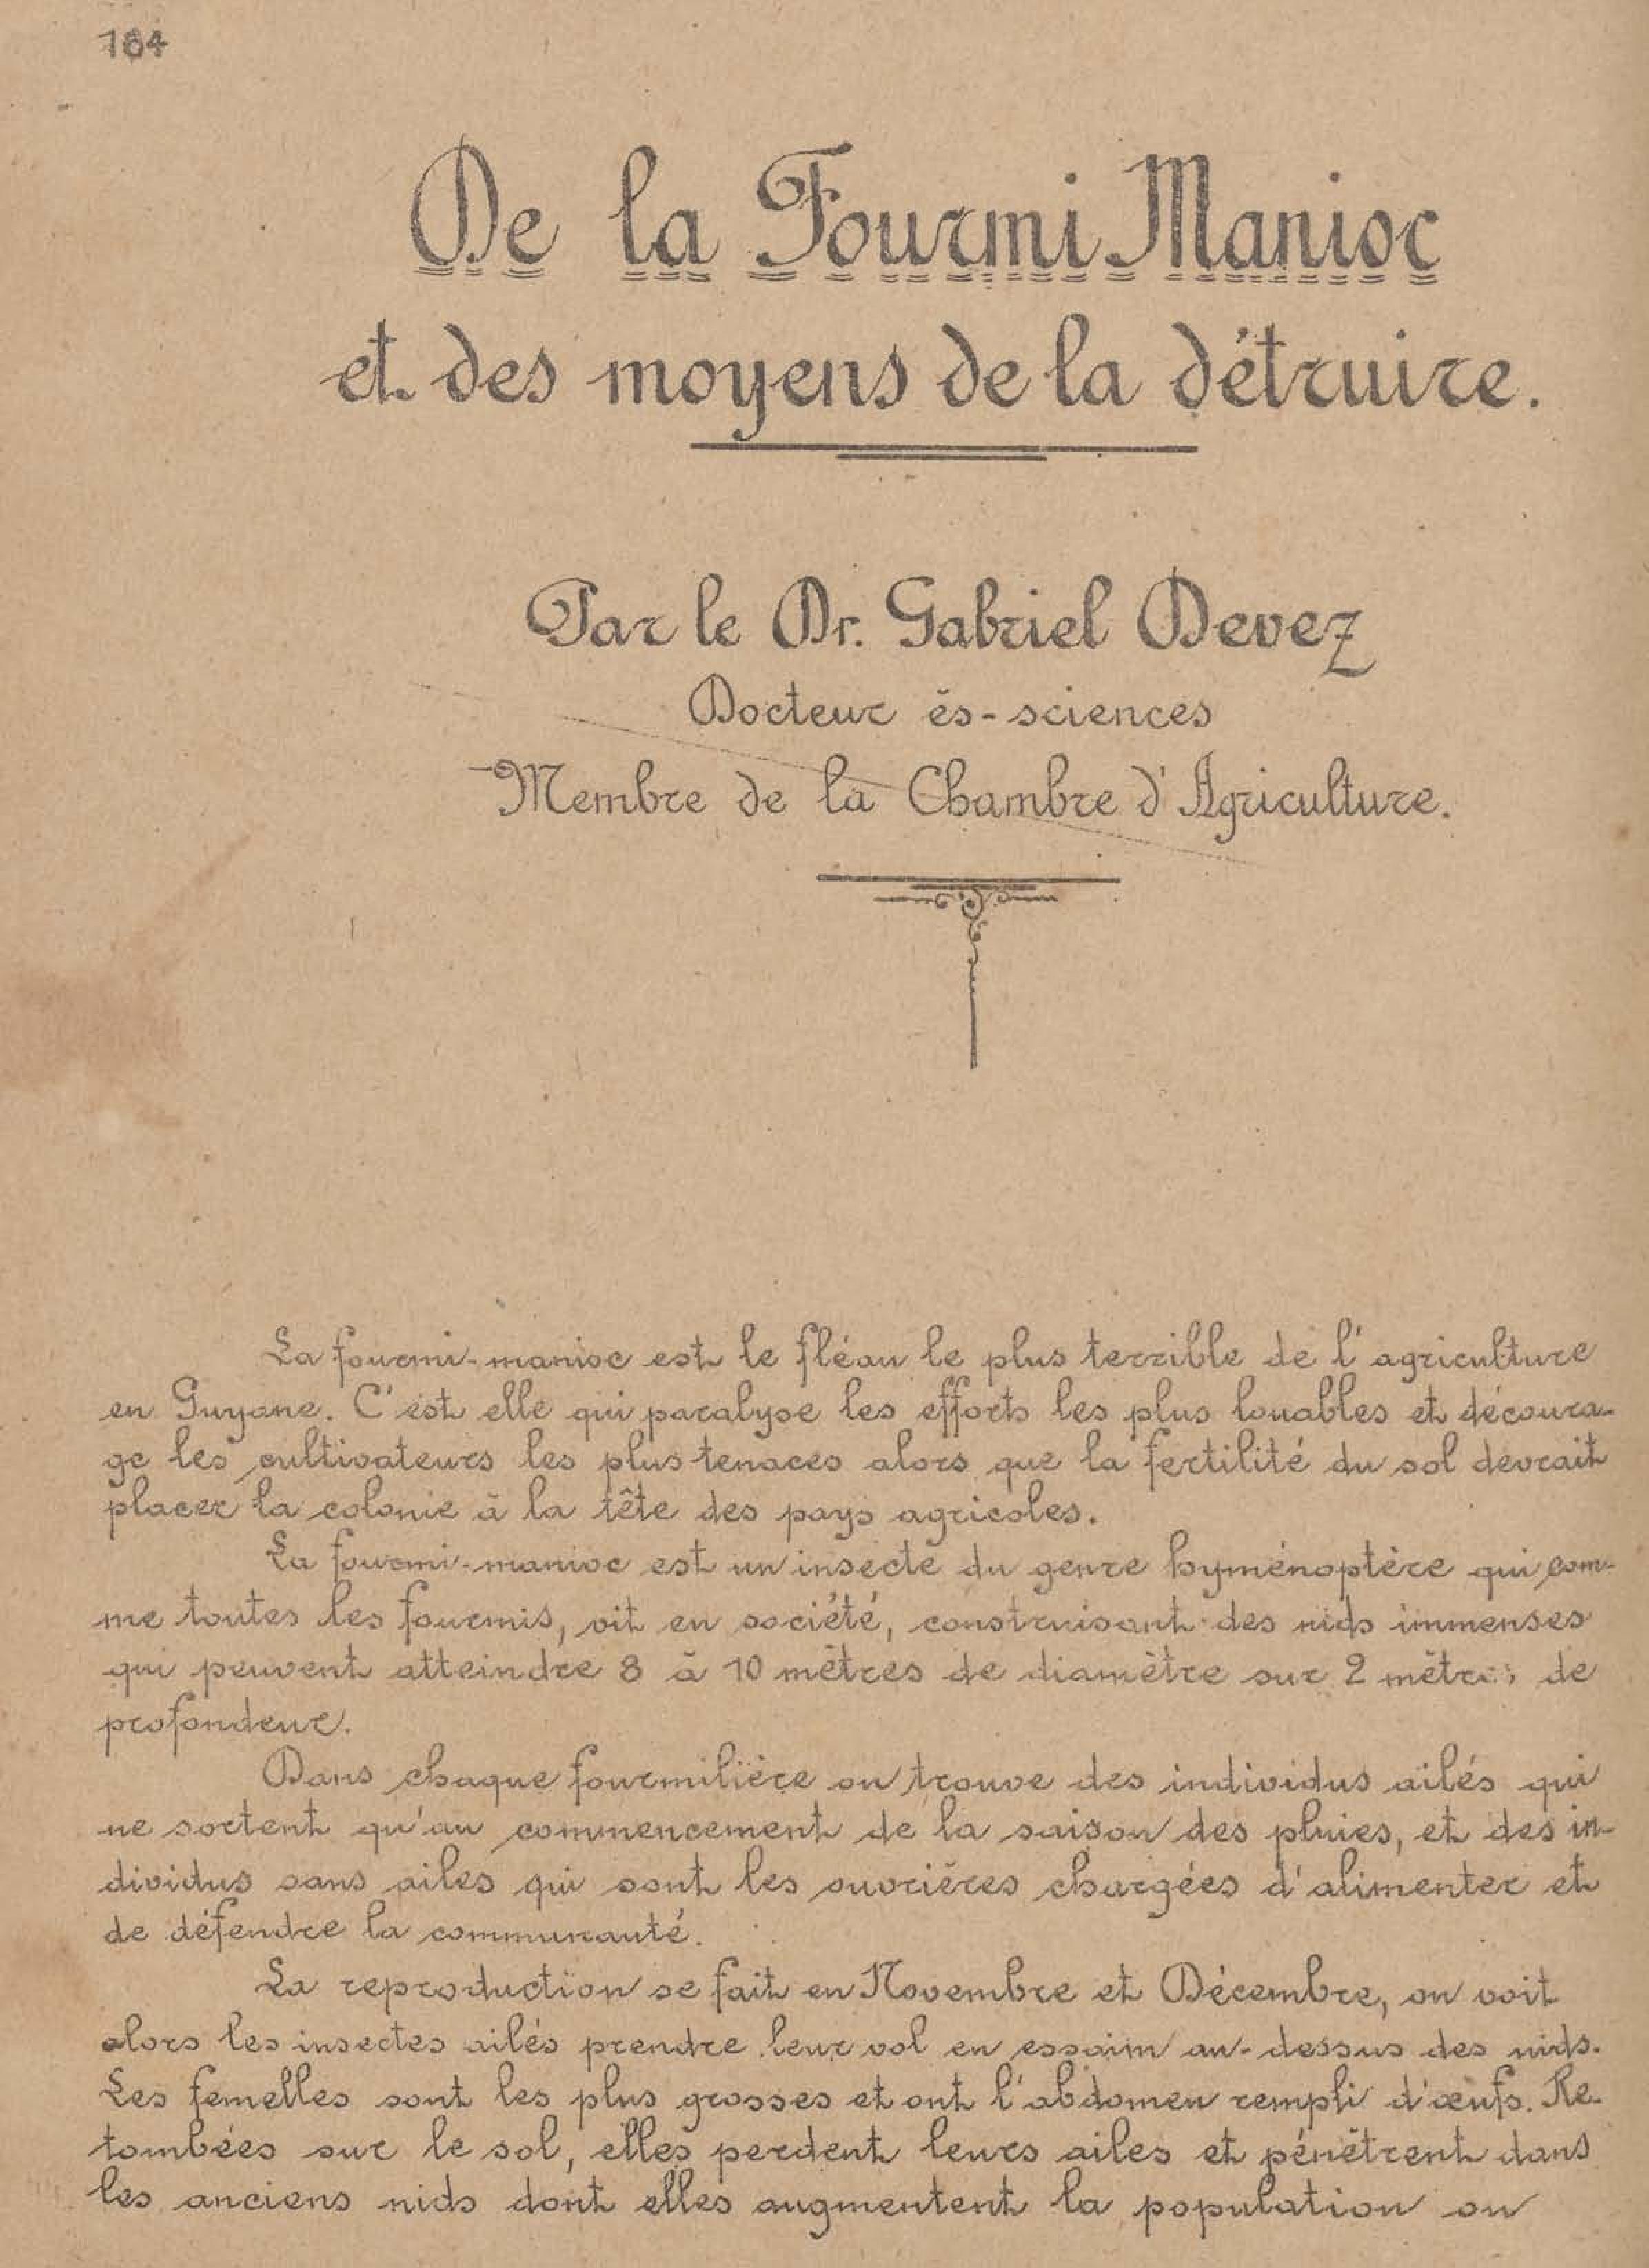 164
De la Fourmi Manioc
et des moyens de la détruire.
Par le Dr. Gabriel Devez
Docteur ès-sciences
Membre de la Chambre d'Agriculture.
La fourmi-manioc est le fléau le plus terrible de l'agriculture
en Guyane. C'est elle qui paralyse les efforts les plus louables et découra-
ge les cultivateurs les plus tenaces alors que la fertilité du sol devrait
placer la colonie à la tête des pays agricoles.
La fourmi-manioc est un insecte du genre hyménoptère qui com-
me toutes les fourmis, vit en société, construisant des nids immenses
qui peuvent atteindre 8 à 10 mètres de diamètre sur 2 mètres de
profondeur.
Dans chaque fourmilière on trouve des individus ailés qui
ne sortent qu'au commencement de la saison des pluies, et des in-
dividus sans ailes qui sont les ouvrières chargées d'alimenter et
de défendre la communauté.
La reproduction se fait en Novembre et Décembre, on voit
alors les insectes ailés prendre leur vol en essaim au-dessus des nids.
Les femelles sont les plus grosses et ont l'abdomen rempli d'œufs. Re-
tombées sur le sol, elles perdent leurs ailes et pénètrent dans
les anciens nids dont elles augmentent la population ou